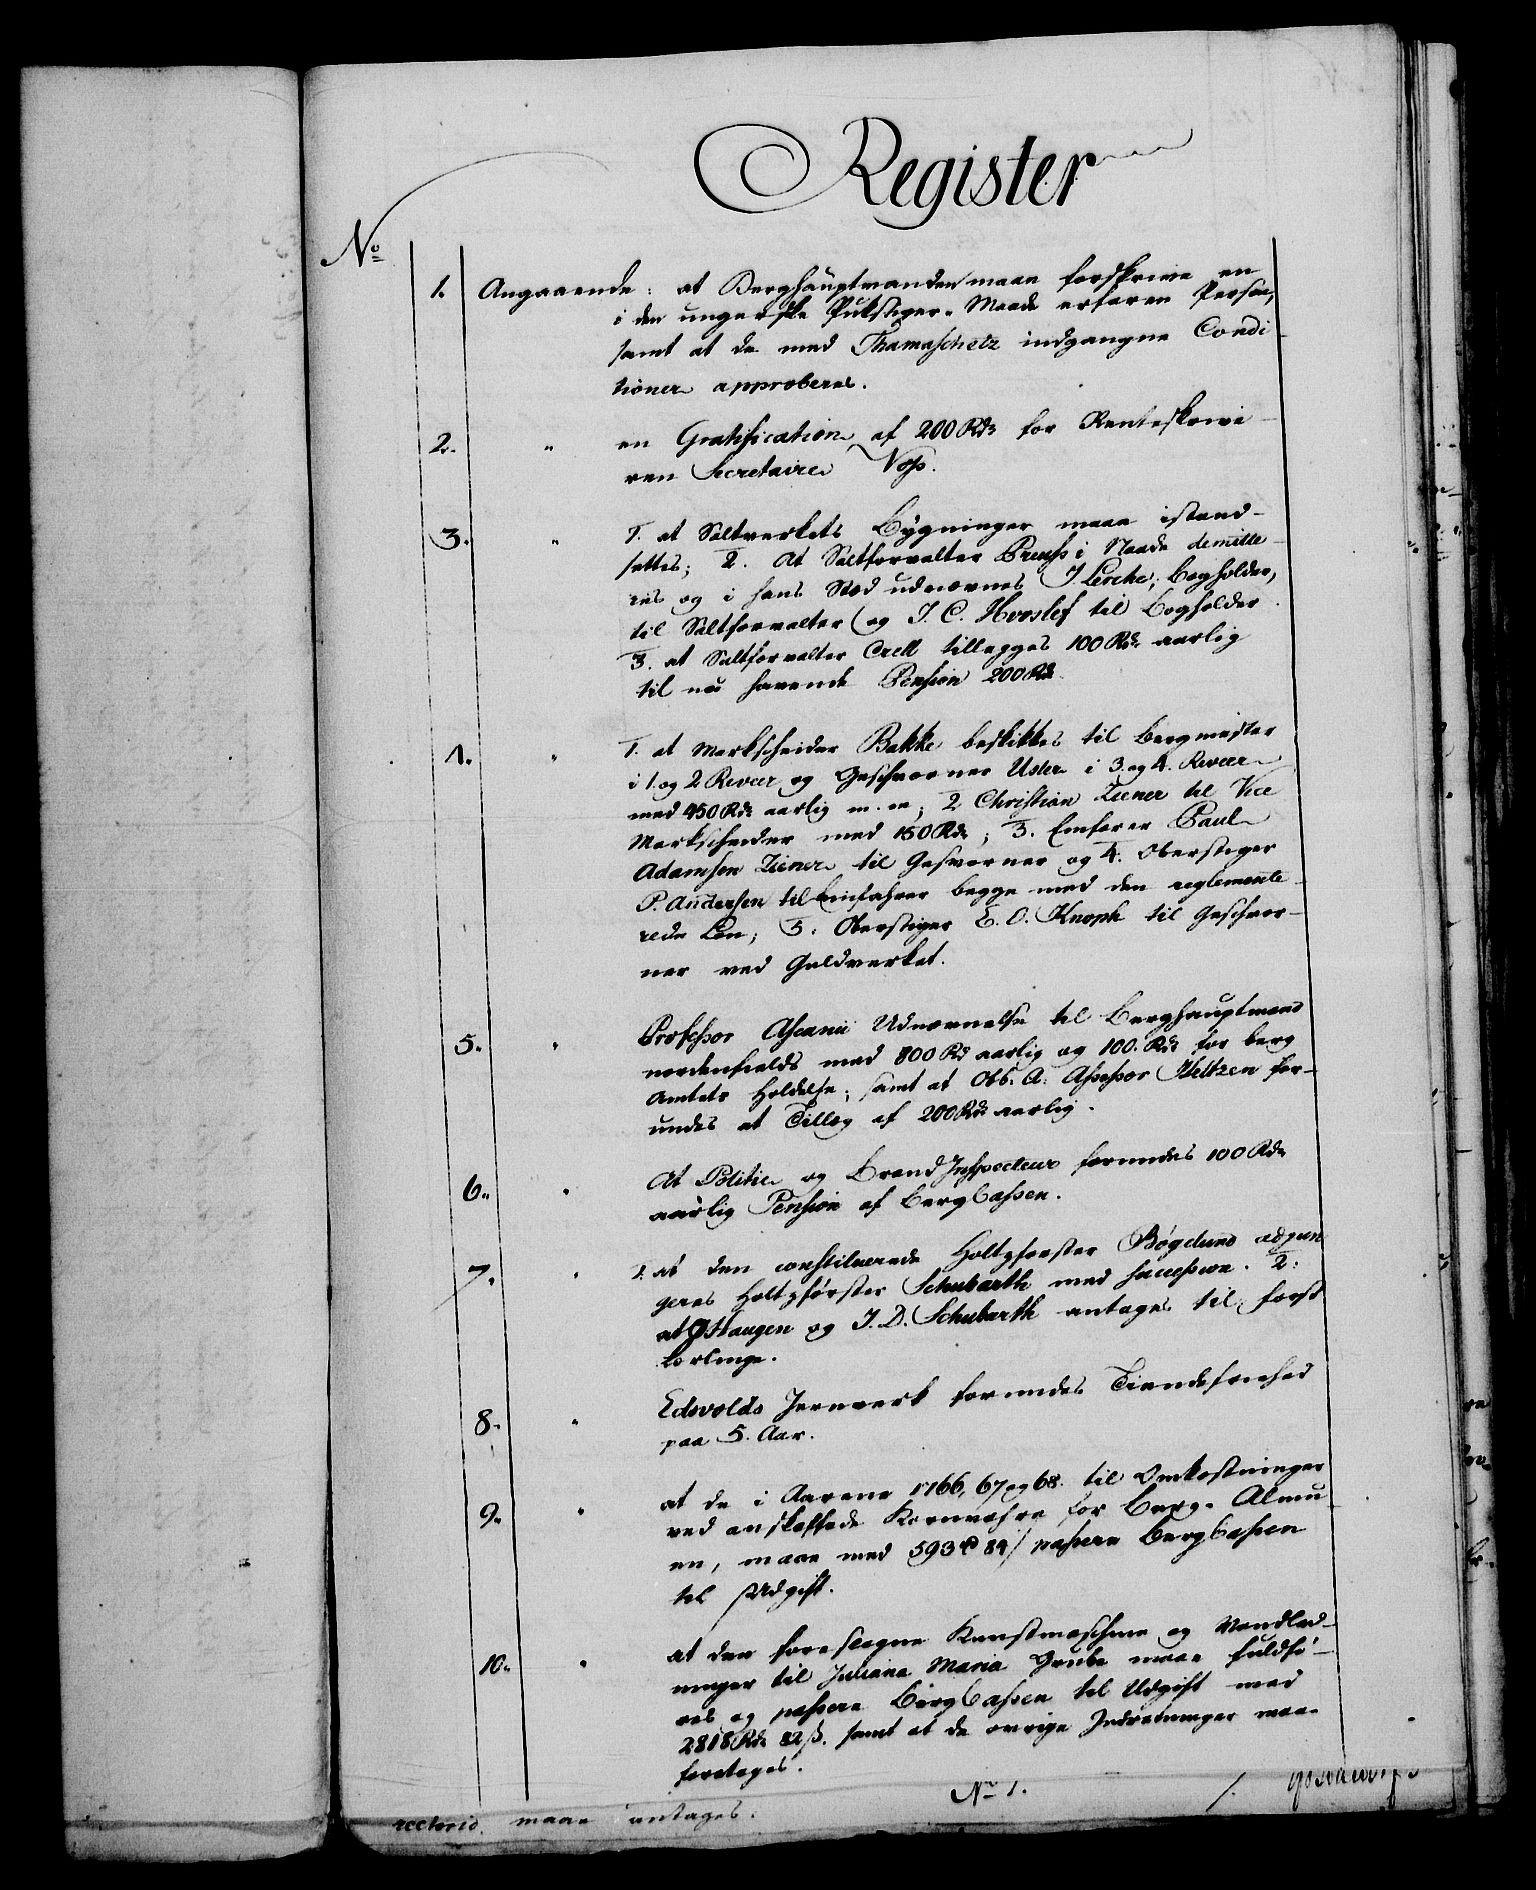 Register
No
1. Angaaende: at Berghauptmanden maae forskrive en
i den ungerske Pukstiger-Maade erfaren Person,
samt at de med Thamaschetz indgangne Condi-
tioner approberes.
2. " en Gratification af 200 Rd. for Renteskrive-
ren Secretaire Voss.
3. " 1. at Saltverkets Bygninger maae istand-
settes; 2. at Saltforvalter Preuss i Naade demitte-
res og i hans Sted udnævnes J. Lerche, Bogholder,
til Saltforvalter og J. C. Hvoslef til Bogholder
3. at Saltforvalter Crell tillegges 100 Rd. aarlig
til nu havende Pension 200 Rd.
4. " 1. at Markscheider Bakke beskikkes til Bergmester
i 1 og 2 Reveer og Geschworner Uster i 3 og 4. Reveer
med 450 Rd. aarlig m. m; 2 Christian Ziener til Vice
Markscheider med 150 Rd.; 3. Einfarer Paul
Adamsen Ziener til Gesvorner og 4. Oberstiger
P. Andersen til Einfahrer begge med den reglemente-
rede Løn; 5. Oberstiger E. O. Knoph til Geschwor-
ner ved Guldverket.
5. " Professor Ascanii Udnævnelse til Berghauptmand
nordenfields med 800 Rd aarlig og 100. Rd. for berg
Amtets Holdelse; samt at Ob. A. Assessor Heltzen for-
undes et Tilleg af 200 Rd. aarlig.
6. " At Politie og Brand Inspecteur forundes 100 Rd.
aarlig Pension af Bergcassen.
7. " 1. at den constituerede Holtzførster Bøgelund adjun
geres Holtzførster Schubarth med succession. 2.
at Haugen og J. D. Schubarth antages til forst
lærlinge.
8. " Edsvolds Jernverk forundes Tiendefriehed
paa 5. Aar.
9. " at de i Aarene 1766, 67 og 68. til Omkostninger
ved anskaffede Kornvahre for Berg-Almu
en, maae med 593 84 passere Bergcassen
til Udgift.
10. " at den foreslagne Kunstmaschine og Vandled-
ninger til Juliana Maria Grube maae fuldfø-
res og passere Bergcassen til Udgift med
2818 Rd. 82 ß. samt at de øvrige Indretninger maae
foretages.
No 1.
maae antages.